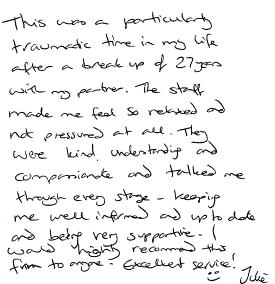 This was a particularly
traumatic time in my life
after a break up of 27 years
with my partner. The staff
made me feel so relaxed and
not pressured at all. They
were kind, understanding and
compassionate and talked me
through every stage - keeping
me well informed and up to date
and being very supportive. I
would highly recommend this
firm to anyone - Excellent service!
☺ Julie